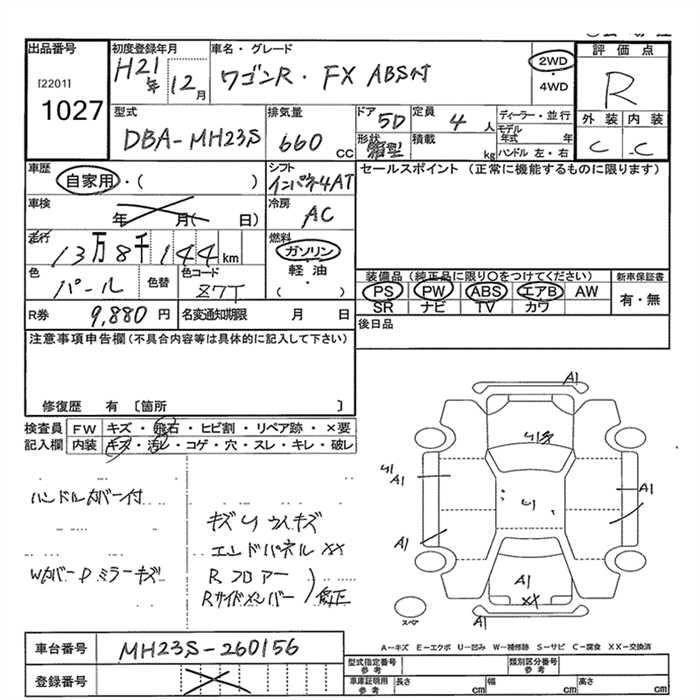 出品番号
[2201]
1027
初度登録年月
H21年 12月
車名・グレード
ワゴンR・FX ABS付
2WD
・
4WD
評価点
R
外装 内装
C C
型式
DBA-MH23S
排気量
660 CC
ドア
5D
定員
4 人
形状
箱型
積載
kg
ディーラー・並行
モデル年式 年
ハンドル 左・右
車歴
自家用・( )
シフト
インパネ4AT
セールスポイント (正常に機能するものに限ります)
車検
年 月( 日)
冷房
AC
走行
13万8千144km
燃料
ガソリン
軽油
・
( )
色
パール
色替
色コード
Z7T
装備品 (純正品に限り○をつけてください)
PS PW ABS エアB AW
SR ナビ TV カワ
新車保証書
有・無
R券 9,880 円
名変通知期限 月 日
後日品
注意事項申告欄 (不具合内容等は具体的に記入して下さい)
修復歴 有 〔箇所 〕
検査員記入欄
FW キズ・飛石・ヒビ割・リペア跡・×要
内装 キズ・汚レ・コゲ・穴・スレ・キレ・破レ
ハンドルカバー付
WカバーDミラーキズ
キズUウスキズ
エンドパネルXX
Rフロアー
Rサイドメンバー
修正
A1
A1
A1
A1
A1
A1
XX
A1
スペア
A-キズ E-エクボ U-凹み W-補修跡 S-サビ C-腐食 XX-交換済
車台番号 MH23S-260156
登録番号
型式指定番号
参考
類別区分番号
参考
車庫証明用
参考
長さ cm 幅 cm 高さ cm